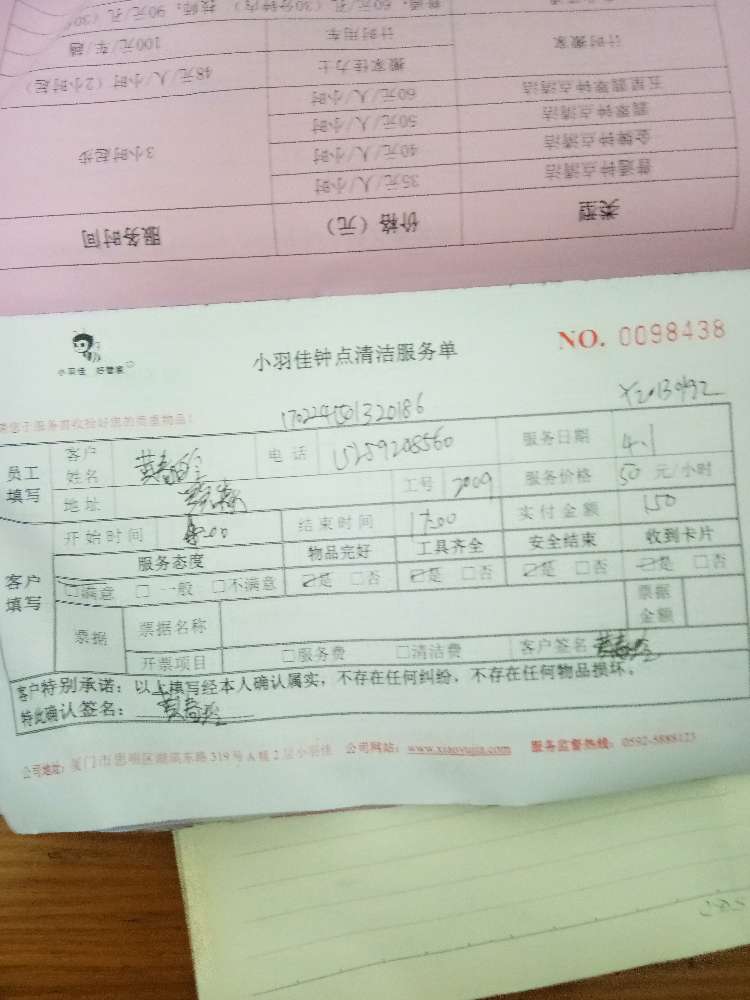 普通：60元/孔（30分钟内） 技师：90元/孔（30
计时搬家 计时用车 100元/车/趟
搬家佳力士 48元/人/小时（2小时起）
五星翡翠钟点清洁 60元/人/小时
翡翠钟点清洁 50元/人/小时
金牌钟点清洁 40元/人/小时 3小时起步
普通钟点清洁 35元/人/小时
类型 价格（元） 服务时间
小羽佳 好管家
小羽佳钟点清洁服务单
NO. 0098438
员工填写 客户姓名 电话 15259208560 服务日期 4.1
地址 工号 2009 服务价格 50 元/小时
开始时间 结束时间 17:00 实付金额 150
客户填写 服务态度 物品完好 工具齐全 安全结束 收到卡片
□满意 □一般 □不满意 ☑是 □否 ☑是 □否 ☑是 □否 ☑是 □否
票据 票据名称 票据金额
开票项目 □服务费 □清洁费 客户签名
客户特别承诺：以上填写经本人确认属实，不存在任何纠纷，不存在任何物品损坏。
特此确认签名：
公司地址：厦门市思明区湖滨东路319号A栋2层小羽佳 公司网站：www.xiaoyujia.com 服务监督热线：0592-5888123